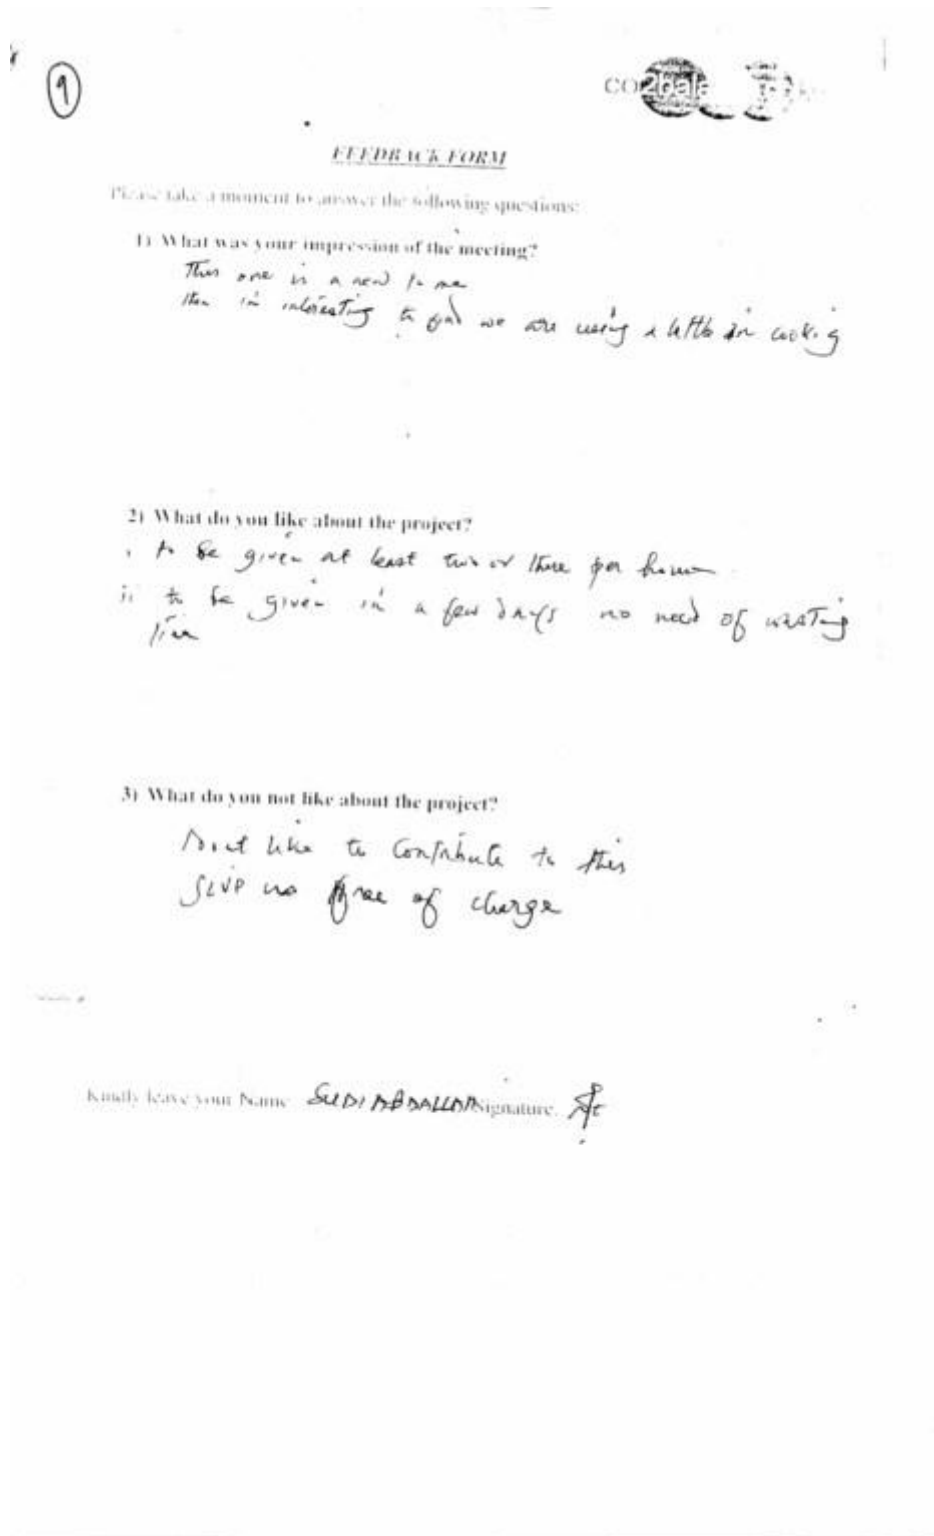 9
CO2bala
FEEDBACK FORM
Please take a moment to answer the following questions:
1) What was your impression of the meeting?
This one is a new to me
in interesting to find we are using a little in cooking
2) What do you like about the project?
i to be given at least two or three per home
ii to be given in a few days no need of wasting
3) What do you not like about the project?
Dont like to contribute to this
give us free of charge
Kindly leave your Name SUDI ABDALLAH Signature.